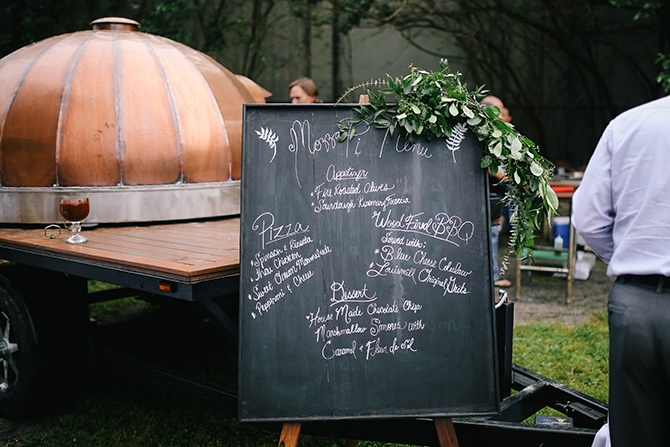 MozzaPi Menu
Appetizer
Fire Roasted Olives
Sourdough Rosemary Focaccia
Pizza
Spinach & Ricotta
Thai Chicken
Sweet Onion Marmalade
Pepperoni & Cheese
Wood Fired BBQ
Served with:
Blue Cheese Coleslaw
Louismill Original Grits
Dessert
House Made Chocolate Chip
Marshmallow Smores with
Caramel & Fleur de sel